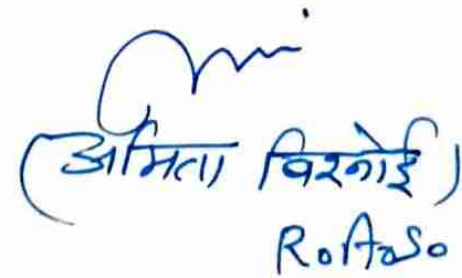 (अमिता विश्नोई)
R.A.S.